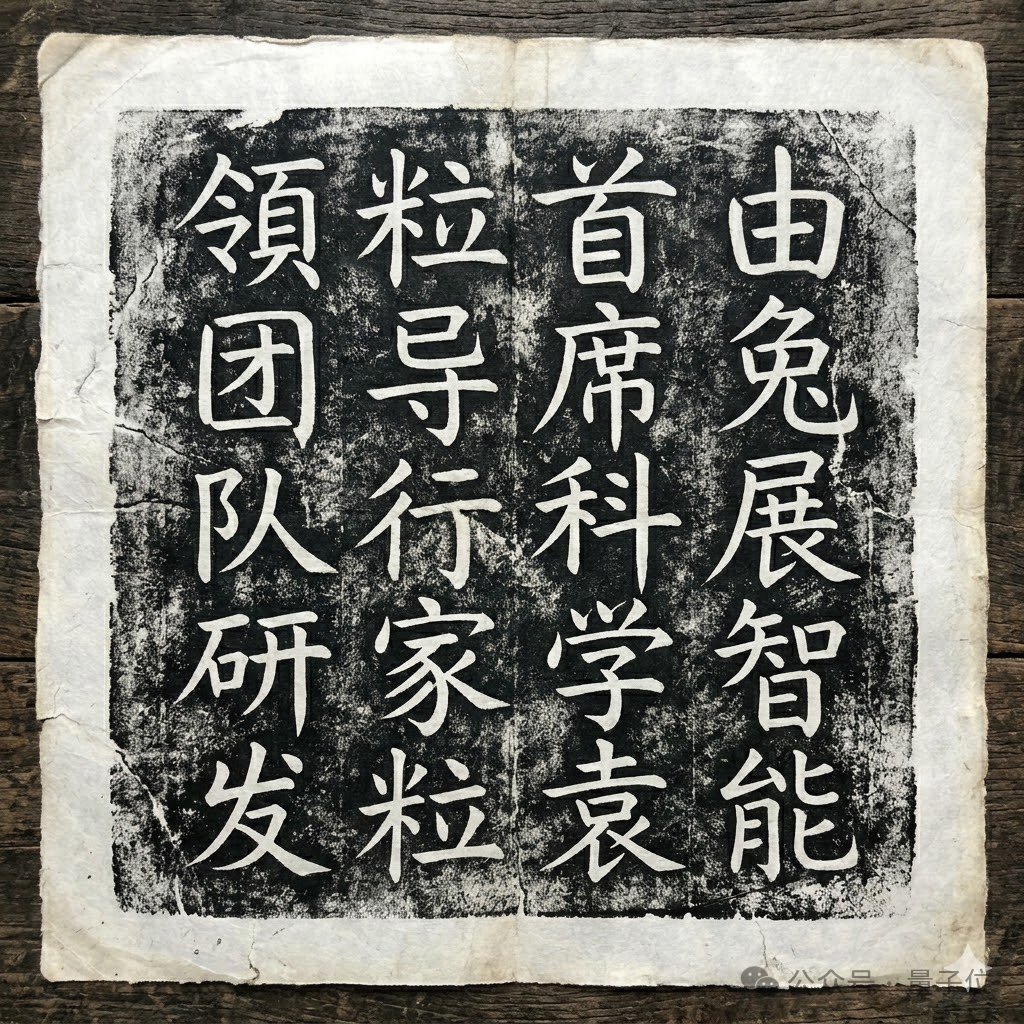 由兔展智能
首席科学袁
粒导行家粒
領团队研发
公众号·量子位